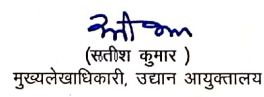 (सतीश कुमार )
मुख्यलेखाधिकारी, उद्यान आयुक्तालय